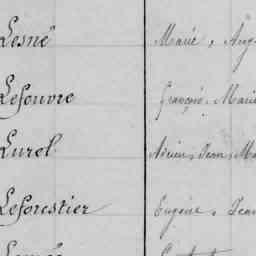 Lesné Marie, Aug
Lefouvre François, Marie
Lurel Adrien, Jean, Ma
Leforestier Eugène, Jean